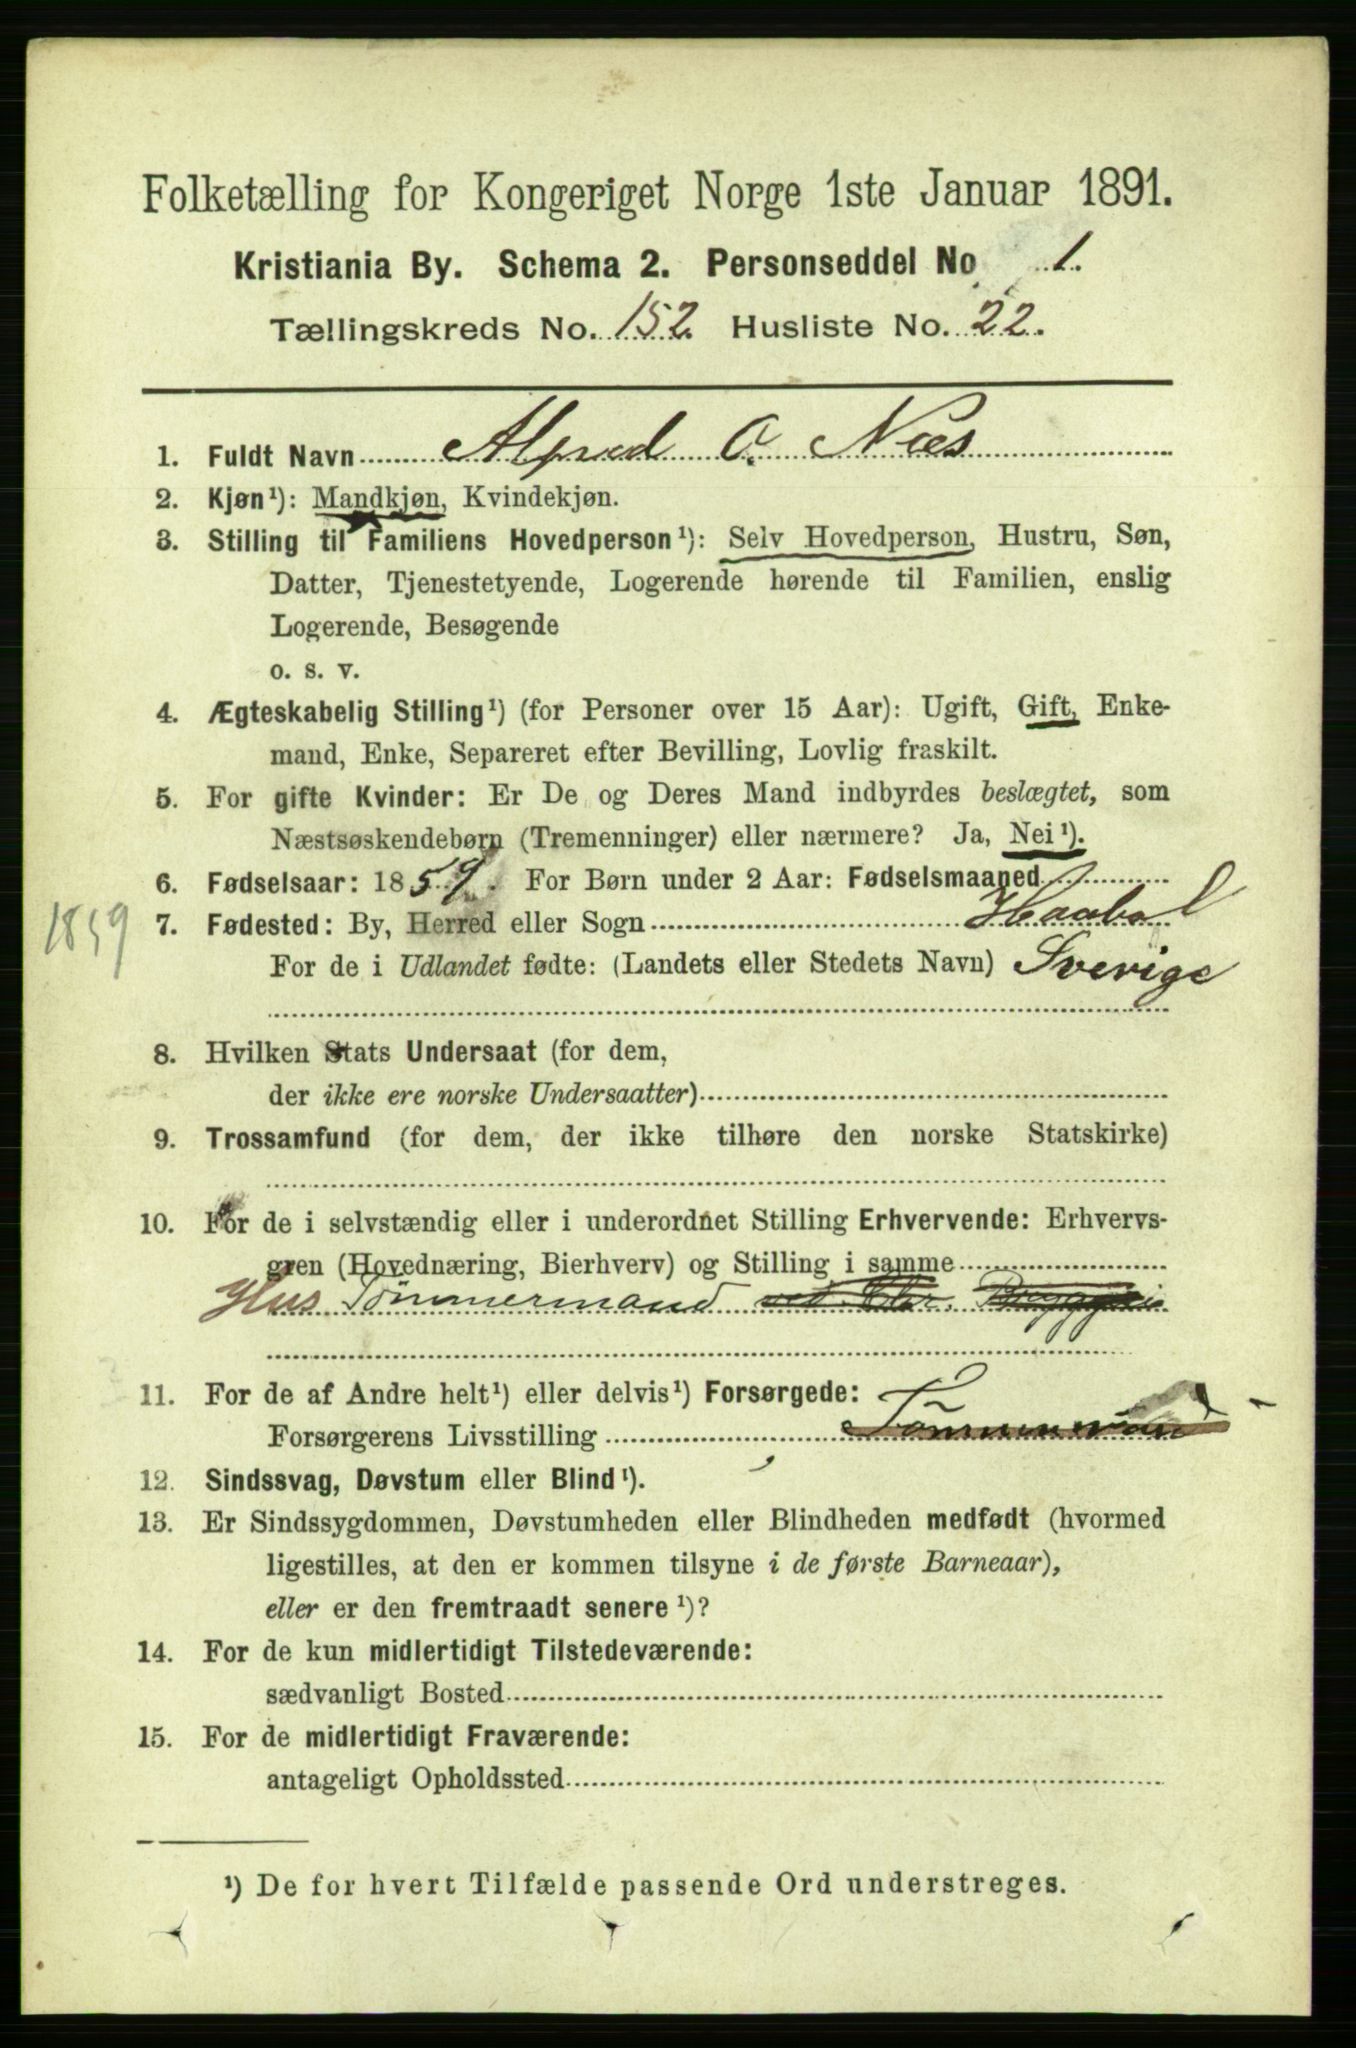 Folketælling for Kongeriget Norge 1ste Januar 1891.
Kristiania By. Schema 2. Personseddel No 1.
Tællingskreds No. 152 Husliste No. 22.
1. Fuldt Navn Alfred O. Næs
2. Kjøn¹): Mandkjøn, Kvindekjøn.
3. Stilling til Familiens Hovedperson¹): Selv Hovedperson, Hustru, Søn,
Datter, Tjenestetyende, Logerende hørende til Familien, enslig
Logerende, Besøgende
o. s. v.
4. Ægteskabelig Stilling¹) (for Personer over 15 Aar): Ugift, Gift, Enke-
mand, Enke, Separeret efter Bevilling, Lovlig fraskilt.
5. For gifte Kvinder: Er De og Deres Mand indbyrdes beslægtet, som
Næstsøskendebørn (Tremenninger) eller nærmere? Ja, Nei¹).
6. Fødselsaar: 1859. For Børn under 2 Aar: Fødselsmaaned
1859
7. Fødested: By, Herred eller Sogn Haabol
For de i Udlandet fødte: (Landets eller Stedets Navn) Sverige
8. Hvilken Stats Undersaat (for dem,
der ikke ere norske Undersaatter)
9. Trossamfund (for dem, der ikke tilhøre den norske Statskirke)
10. For de i selvstændig eller i underordnet Stilling Erhvervende: Erhvervs-
gren (Hovednæring, Bierhverv) og Stilling i samme
Hus Tömmermand ved Chr. Bryggeri
11. For de af Andre helt¹) eller delvis¹) Forsørgede:
Forsørgerens Livsstilling Tömmermand
12. Sindssvag, Døvstum eller Blind¹).
13. Er Sindssygdommen, Døvstumheden eller Blindheden medfødt (hvormed
ligestilles, at den er kommen tilsyne i de første Barneaar),
eller er den fremtraadt senere¹)?
14. For de kun midlertidigt Tilstedeværende:
sædvanligt Bosted
15. For de midlertidigt Fraværende:
antageligt Opholdssted
¹) De for hvert Tilfælde passende Ord understreges.